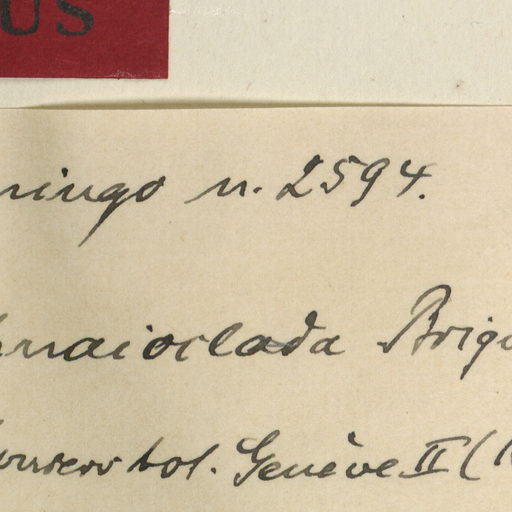 US
mingo n. 2594.
naioclada Briqu
Conserv bot. Genève II (1